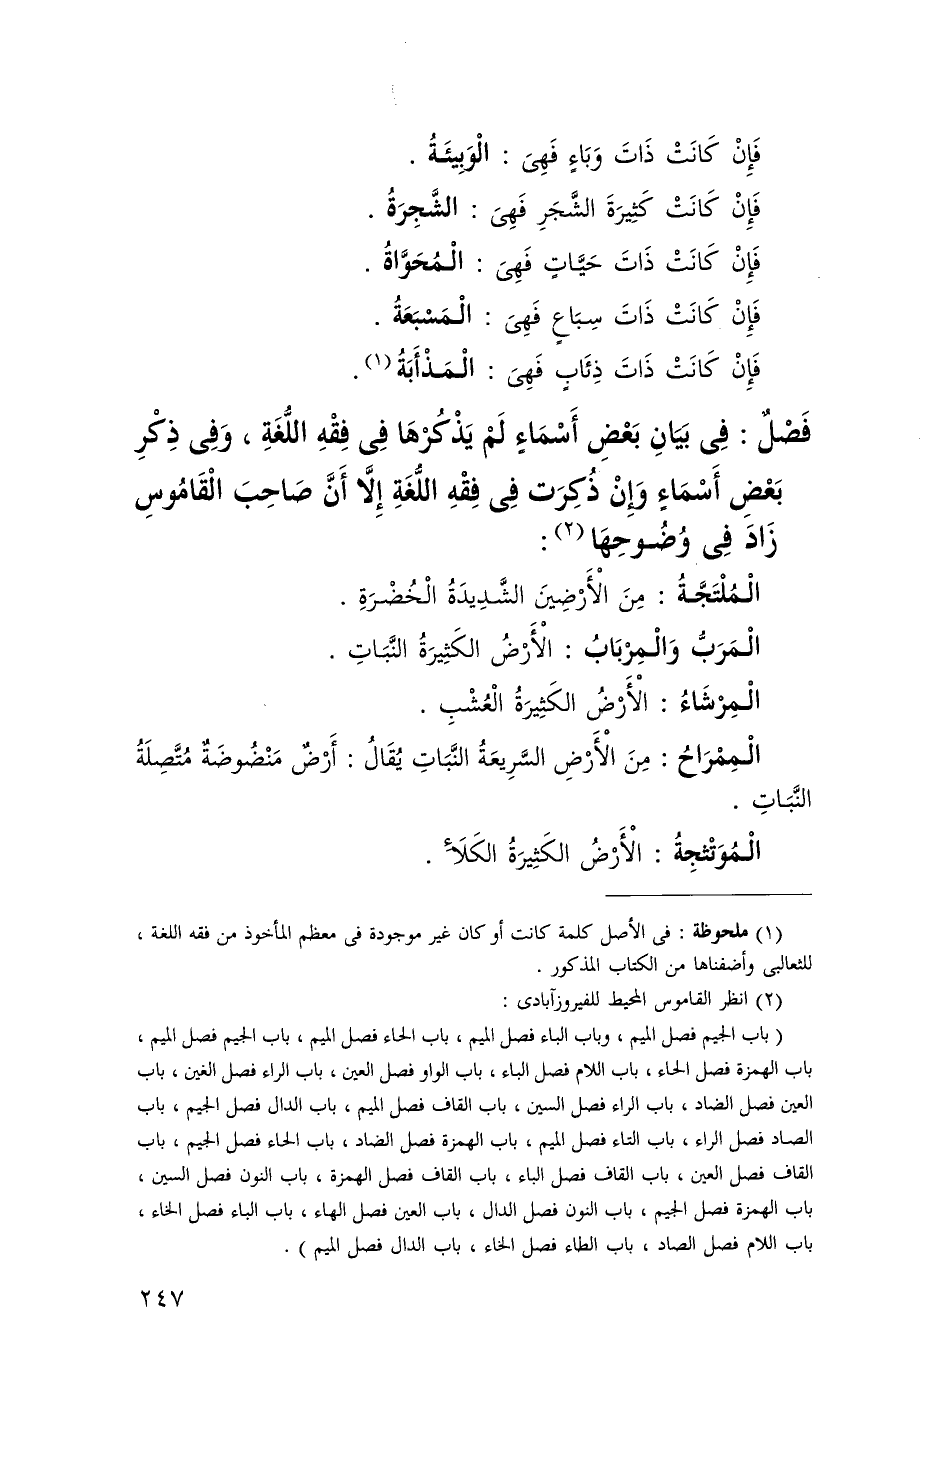 فَإِنْ كَانَتْ ذَاتَ وَبَاءٍ فَهِىَ : الْوَبِيئَةُ .
فَإِنْ كَانَتْ كَثِيرَةَ الشَّجَرِ فَهِىَ : الشَّجِرَةُ .
فَإِنْ كَانَتْ ذَاتَ حَيَّاتٍ فَهِىَ : الْمُحَوَّاةُ .
فَإِنْ كَانَتْ ذَاتَ سِبَاعٍ فَهِىَ : الْمَسْبَعَةُ .
فَإِنْ كَانَتْ ذَاتَ ذِئَابٍ فَهِىَ : الْمَذْأَبَةُ (١) .
فَصْلٌ : فِى بَيَانِ بَعْضِ أَسْمَاءٍ لَمْ يَذْكُرْهَا فِى فِقْهِ اللُّغَةِ ، وَفِى ذِكْرِ
بَعْضِ أَسْمَاءٍ وَإِنْ ذُكِرَت فِى فِقْهِ اللُّغَةِ إِلَّا أَنَّ صَاحِبَ الْقَامُوسِ
زَادَ فِى وُضُوحِهَا (٢) :
الْمُلْتَجَّةُ : مِنَ الْأَرْضِينَ الشَّدِيدَةُ الْخُضْرَةِ .
الْمَرَبُّ وَالْمِرْبَابُ : الْأَرْضُ الكَثِيرَةُ النَّبَاتِ .
الْمِرْشَاءُ : الْأَرْضُ الكَثِيرَةُ الْعُشْبِ .
الْمِمْرَاحُ : مِنَ الْأَرْضِ السَّرِيعَةُ النَّبَاتِ يُقَالُ : أَرْضٌ مَنْضُوضَةٌ مُتَّصِلَةُ
النَّبَاتِ .
الْمُوَتْثِجةُ : الْأَرْضُ الكَثِيرَةُ الكَلَأ .
(١) ملحوظة : فى الأصل كلمة كانت أو كان غير موجودة فى معظم المأخوذ من فقه اللغة ،
للثعالبى وأضفناها من الكتاب المذكور .
(٢) انظر القاموس المحيط للفيروزآبادى :
( باب الجيم فصل الميم ، وباب الباء فصل الميم ، باب الحاء فصل الميم ، باب الجيم فصل الميم ،
باب الهمزة فصل الحاء ، باب اللام فصل الباء ، باب الواو فصل العين ، باب الراء فصل الغين ، باب
العين فصل الضاد ، باب الراء فصل السين ، باب القاف فصل الميم ، باب الدال فصل الجيم ، باب
الصاد فصل الراء ، باب التاء فصل الميم ، باب الهمزة فصل الضاد ، باب الحاء فصل الجيم ، باب
القاف فصل العين ، باب القاف فصل الباء ، باب القاف فصل الهمزة ، باب النون فصل السين ،
باب الهمزة فصل الجيم ، باب النون فصل الدال ، باب العين فصل الهاء ، باب الباء فصل الخاء ،
باب اللام فصل الصاد ، باب الطاء فصل الخاء ، باب الدال فصل الميم ) .
٢٤٧